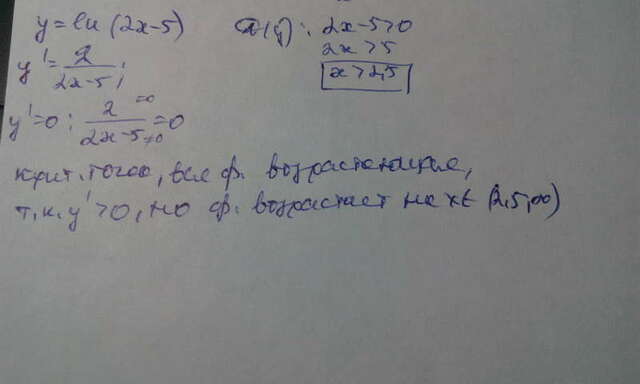 y = ln (2x-5)
D(y): 2x-5>0
2x>5
x>2,5
y' = 2/(2x-5);
y'=0: 2/(2x-5) = 0
=0
≠0
крит. точек, вся ф. возрастающая,
т.к. y' >0, но ф. возрастает на x∈ (2,5,∞)